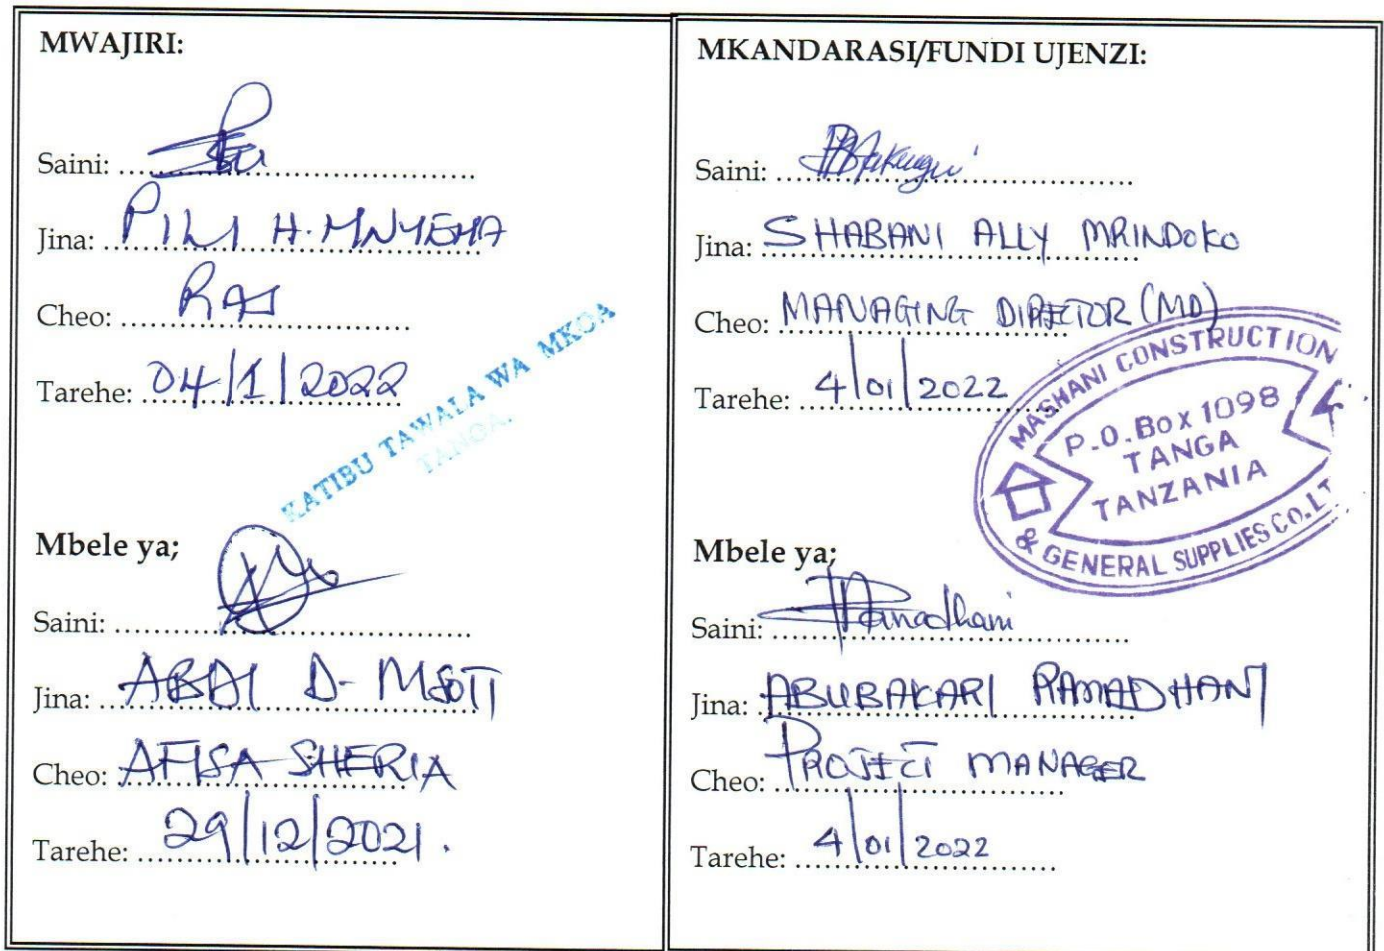 MWAJIRI:
Saini:
Jina: PILI H. MNYEMA
Cheo: RAS
Tarehe: 04/1/2022
KATIBU TAWALA WA MKOA
TANGA.
Mbele ya;
Saini:
Jina: ABDI D-
Cheo: AFISA SHERIA
Tarehe: 29/12/2021.
MKANDARASI/FUNDI UJENZI:
Saini:
Jina: SHABANI ALLY MRINDOKO
Cheo: MANAGING DIRECTOR (MD)
Tarehe: 4/01/2022
MASHANI CONSTRUCTION
P.O. Box 1098
TANGA
TANZANIA
& GENERAL SUPPLIES CO. LT
Mbele ya;
Saini: Ramadhani
Jina: ABUBAKARI RAMADHANI
Cheo: PROJECT MANAGER
Tarehe: 4/01/2022